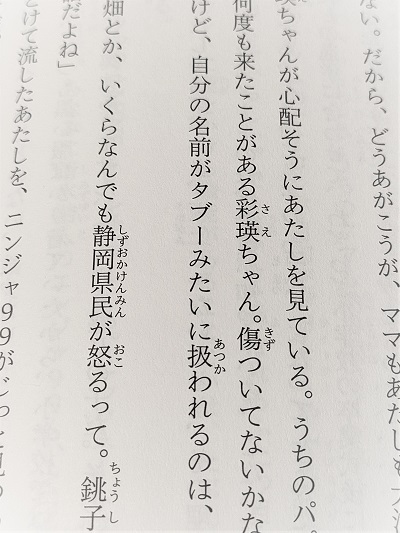 ない。だから、どうあがこうが、ママもあたしも
瑛ちゃんが心配そうにあたしを見ている。うちのパ
何度も来たことがある彩瑛ちゃん。傷ついてないかな
けど、自分の名前がタブーみたいに扱われるのは、
畑とか、いくらなんでも静岡県民が怒るって。銚子
だよね」
とけて流したあたしを、ニンジャ99がじっと見つ